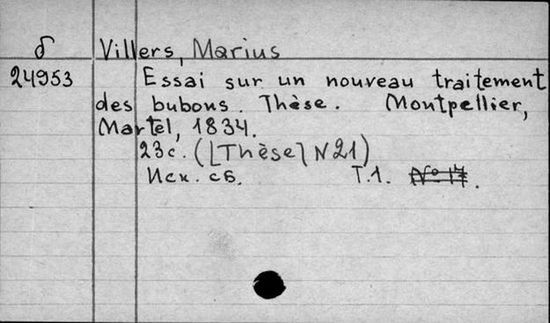 δ Villers, Marius
24953 Essai sur un nouveau traitement
des bubons. Thèse. Montpellier,
Martel, 1834.
23с. ([Thèse] N21)
Иск. сб. Т.1. №17.